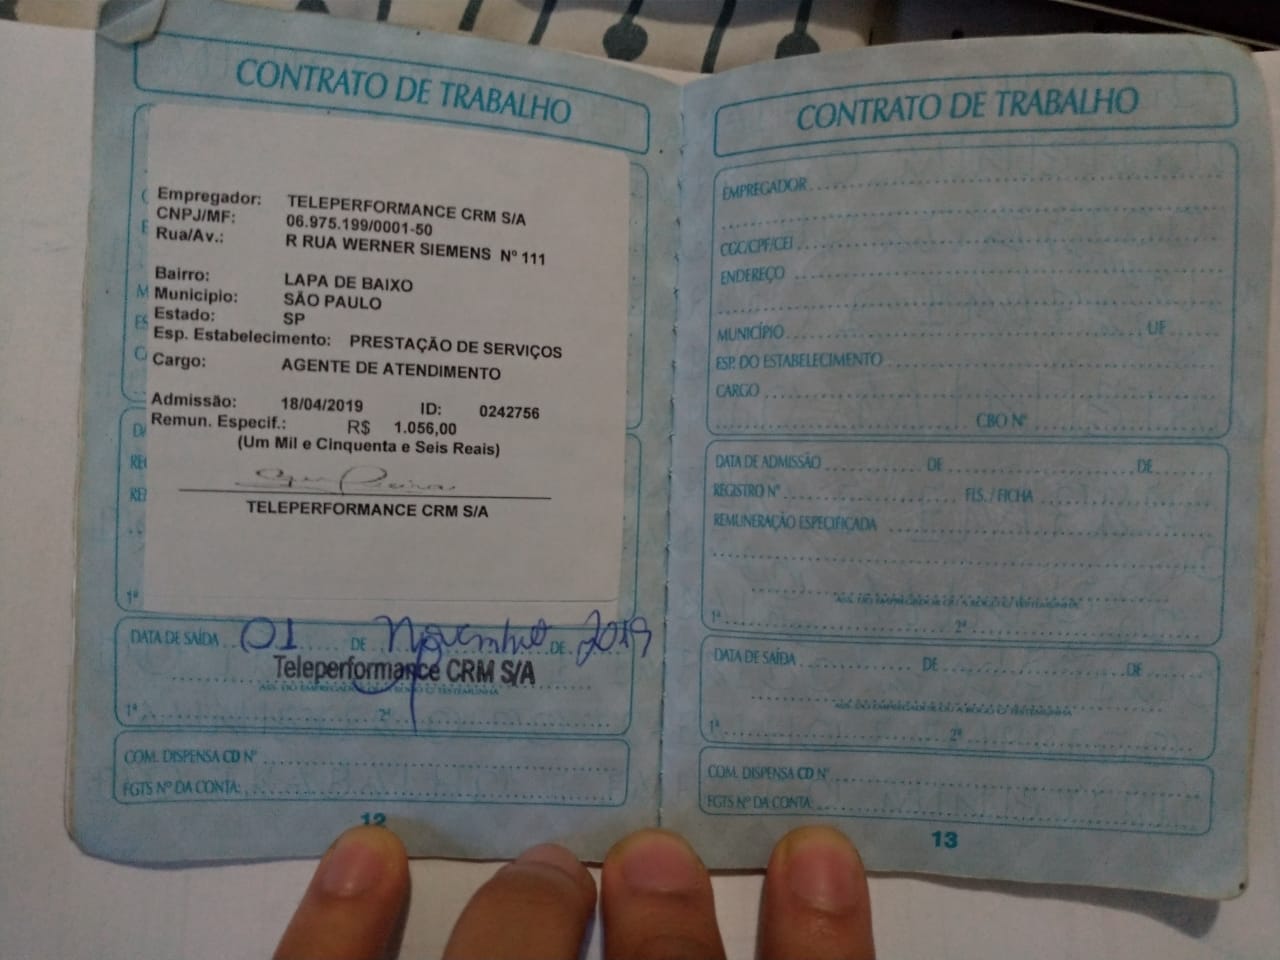 CONTRATO DE TRABALHO
Empregador: TELEPERFORMANCE CRM S/A
CNPJ/MF: 06.975.199/0001-50
Rua/Av.: R RUA WERNER SIEMENS Nº 111
Bairro: LAPA DE BAIXO
Municipio: SÃO PAULO
Estado: SP
Esp. Estabelecimento: PRESTAÇÃO DE SERVIÇOS
Cargo: AGENTE DE ATENDIMENTO
Admissão: 18/04/2019 ID: 0242756
Remun. Especif.: R$ 1.056,00
(Um Mil e Cinquenta e Seis Reais)
TELEPERFORMANCE CRM S/A
1ª
DATA DE SAÍDA 01 DE Novembro DE 2019
Teleperformance CRM S/A
1ª 2ª
COM. DISPENSA CD Nº
FGTS Nº DA CONTA:
12
CONTRATO DE TRABALHO
EMPREGADOR
CGC/CPF/CEI
ENDEREÇO
MUNICÍPIO UF
ESP. DO ESTABELECIMENTO
CARGO
CBO Nº
DATA DE ADMISSÃO DE DE
REGISTRO Nº FLS. / FICHA
REMUNERAÇÃO ESPECIFICADA
ASS. DO EMPREGADOR OU A ROGO C/ TESTEMUNHA
1ª 2ª
DATA DE SAÍDA DE DE
ASS. DO EMPREGADOR OU A ROGO C/ TESTEMUNHA
1ª 2ª
COM. DISPENSA CD Nº
FGTS Nº DA CONTA:
13